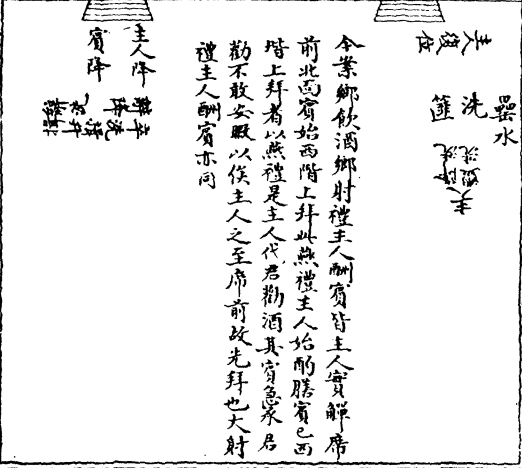 罍水
洗
篚
主人復位
今案鄉飲酒鄉射禮主人酬賓皆主人實觶席
前北面賓始西階上拜此燕禮主人始酌賸賓已西
階上拜者以燕禮是主人代君勸酒其賓急承君
勸不敢安暇以俟主人之至席前故先拜也大射
禮主人酬賓亦同
主人降
賓降